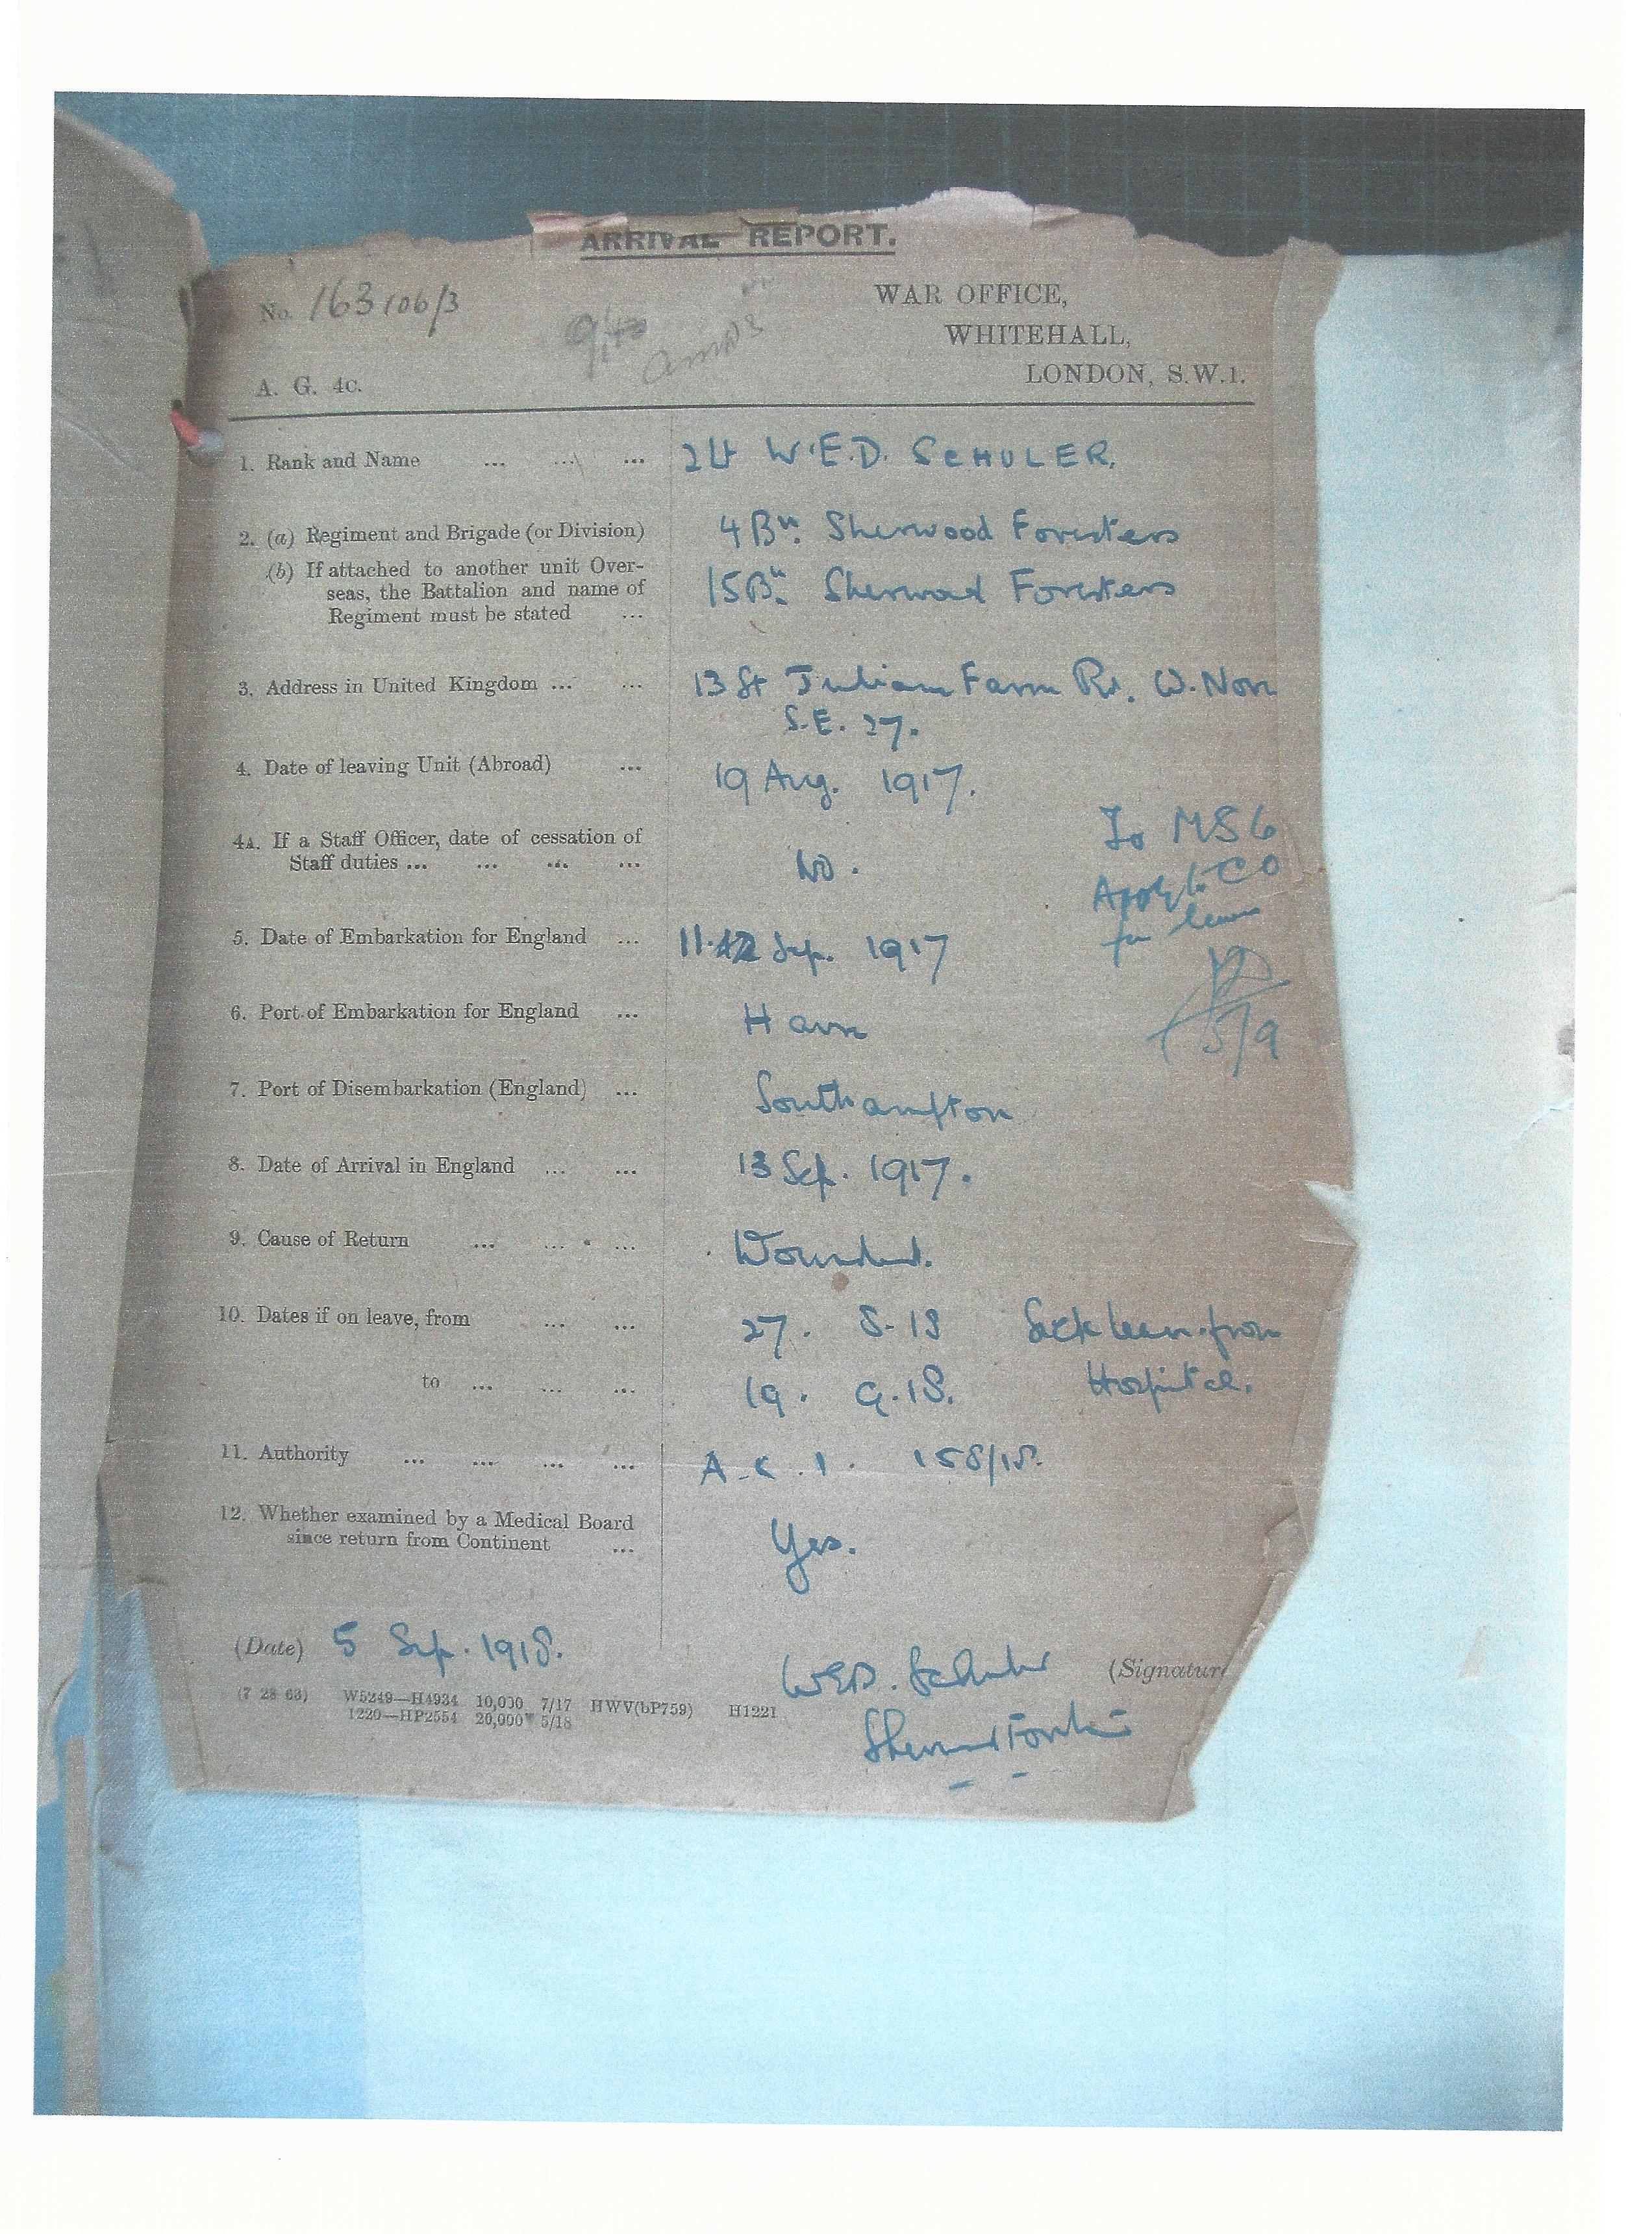 ARRIVAL REPORT.
No. 163106/3
WAR OFFICE,
WHITEHALL,
LONDON, S.W.1.
A. G. 4c.
1. Rank and Name ... ... ... 2Lt W.E.D. SCHULER.
2. (a) Regiment and Brigade (or Division) 4 Bn. Sherwood Foresters
(b) If attached to another unit Over-
seas, the Battalion and name of 15 Bn. Sherwood Foresters
Regiment must be stated ...
3. Address in United Kingdom ... ... 13 St Julians Farm Rd. W. Nor
S.E. 27.
4. Date of leaving Unit (Abroad) ... 19 Aug. 1917.
To MS6
4A. If a Staff Officer, date of cessation of
Staff duties ... ... ... ... No.
Apply to CO
for leave
5. Date of Embarkation for England ... 11.12 Sep. 1917
6. Port of Embarkation for England ... Havre
5/9
7. Port of Disembarkation (England) ... Southampton
8. Date of Arrival in England ... ... 13 Sep. 1917.
9. Cause of Return ... ... ... Wounded.
10. Dates if on leave, from ... ... 27. 8-18 Sick leave from
to ... ... ... 19. 9.18. Hospital.
11. Authority ... ... ... ... A.C.I. 158/18.
12. Whether examined by a Medical Board
since return from Continent ... Yes.
(Date) 5 Sep. 1918.
WED. Schuler (Signature
(7 28 63) W5249—H4934 10,000 7/17 HWV(bP759) H1221
1220—HP2554 20,000 5/18
Sherwood Foresters